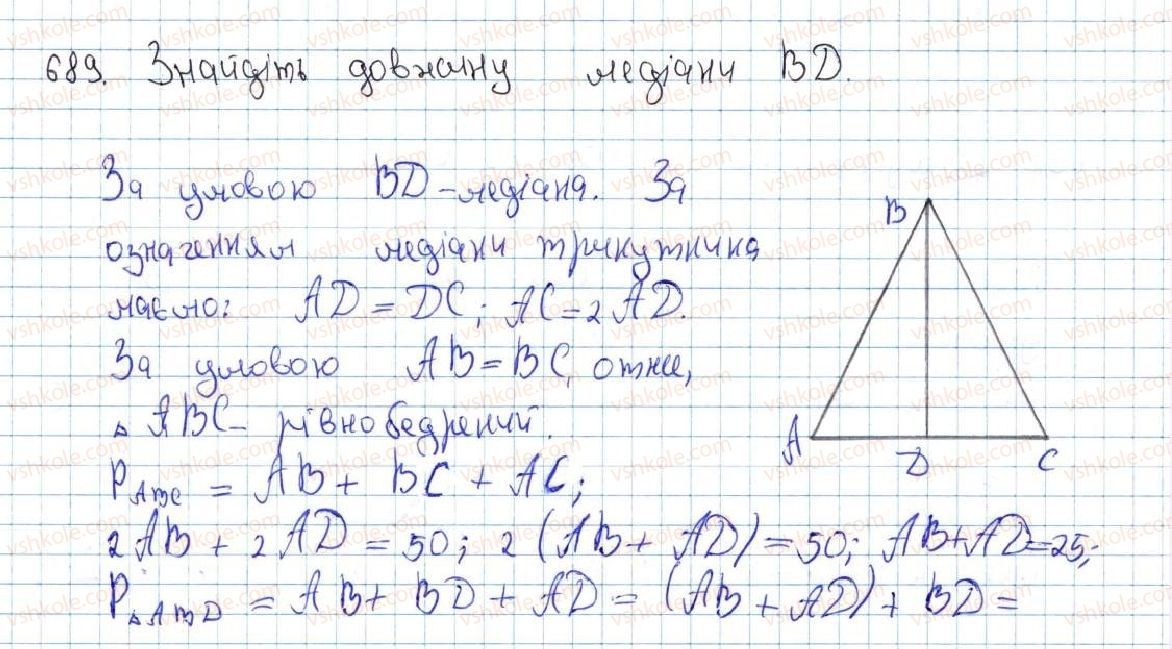 689. Знайдіть довжину медіани BD.
За умовою BD - медіана. За
означенням медіани трикутника
маємо: AD = DC; AC = 2 AD.
За умовою AB = BC, отже,
△ ABC - рівнобедрений.
P ABC = AB + BC + AC;
2 AB + 2 AD = 50; 2 (AB + AD) = 50; AB + AD = 25;
P △ ABD = AB + BD + AD = (AB + AD) + BD =
B
A
D
C